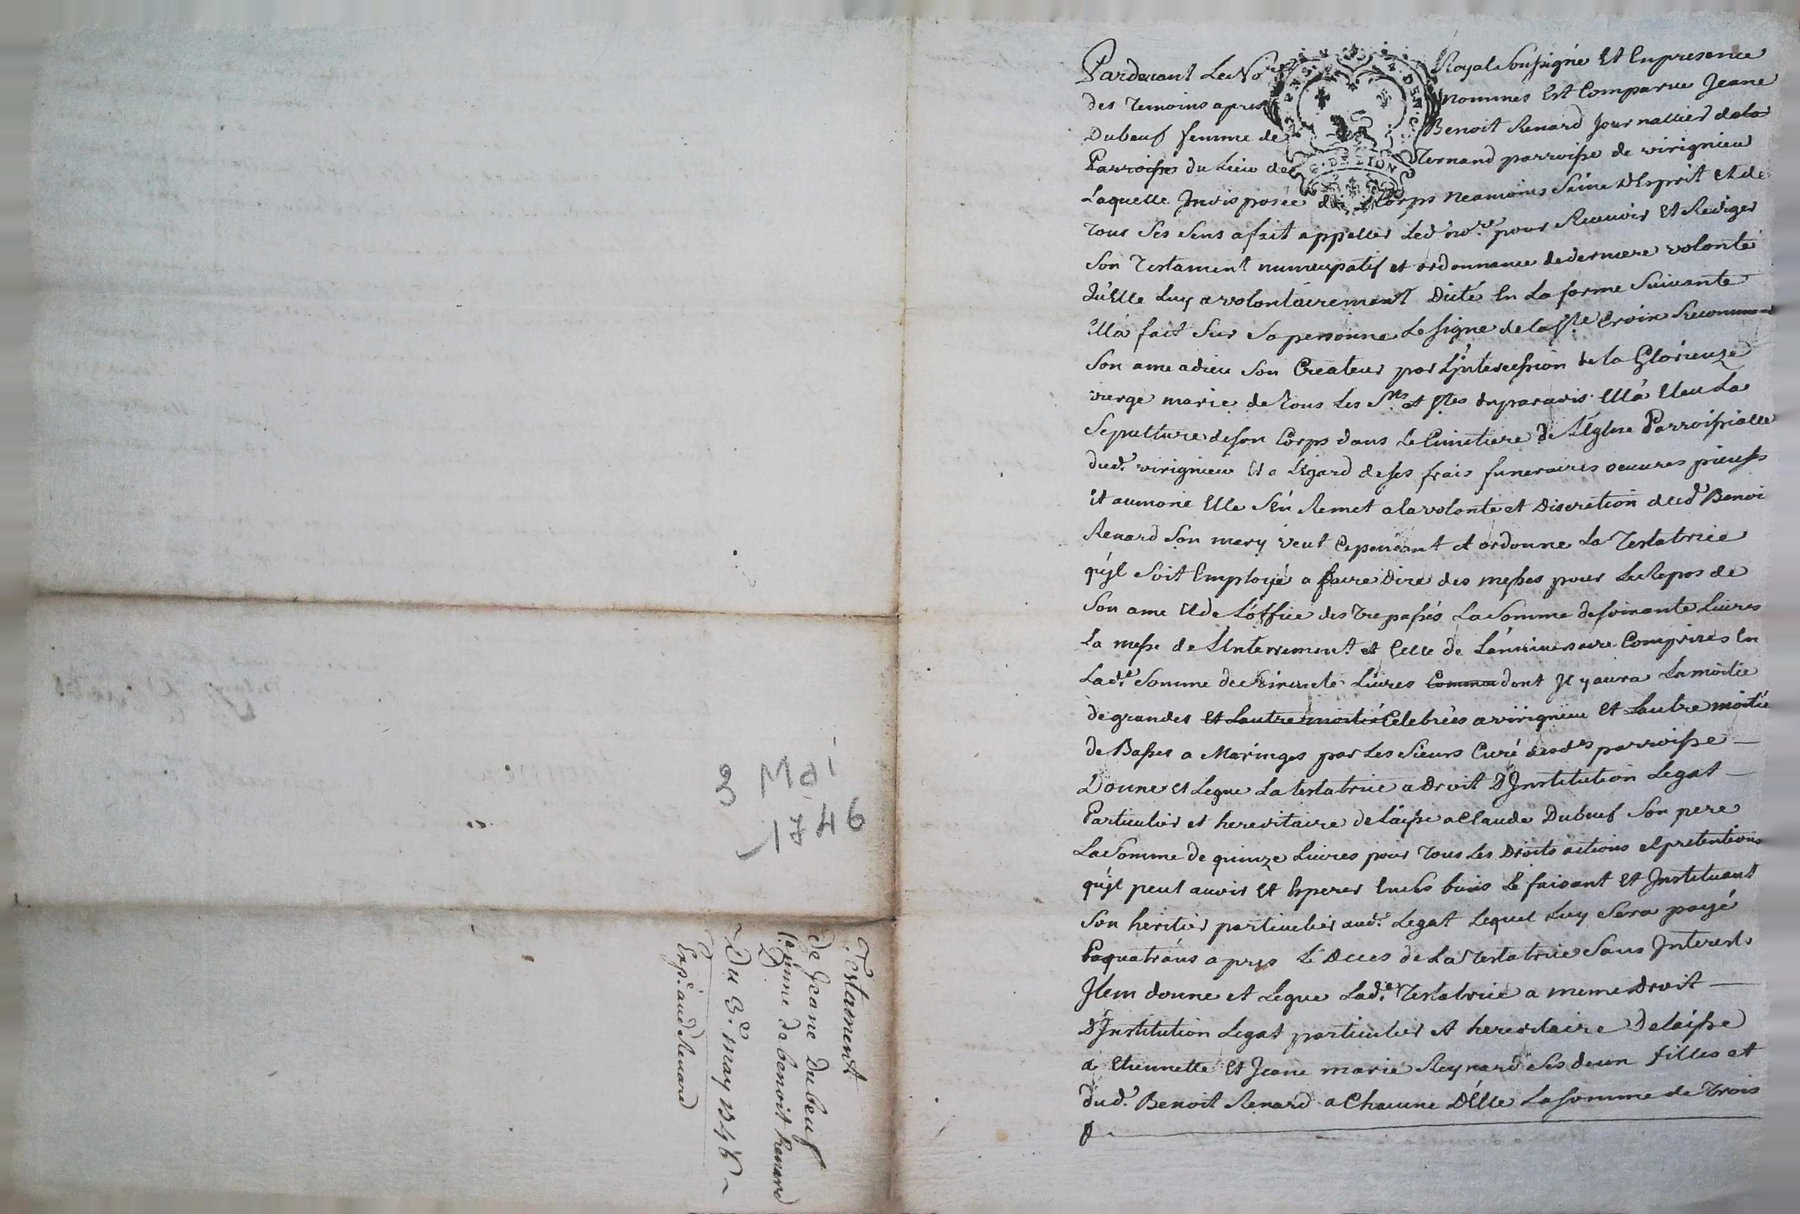 3 Mai
1746
Testament
de Jeane Dubeuf
femme de benoit Renard
Du 3e. may 1746
Exp.e aud. Renard
G. DE LION
Pardevant Le No.re Royal Soussigné Et En presence
des Temoins apres nommés Est Comparue Jeane
Dubeuf femme de Benoit Renard Journallier de la
Parroisse du Lieu de Ternand parroisse de virignieu
Laquelle Indisposée de Corps neamoins Saine D'Esprit et de
Tous Ses Sens a fait appeller Led. no.re pour Recevoir Et Rediger
Son Testament nuncupatif et ordonnance de derniere volonté
qu'Elle Luy a volontairement Dicté En La forme Suivante
Ella fait Sur Sa personne Le Signe de la S.te Croix Recommandé
Son ame a dieu Son Createur par L'Intercession de la Glorieuze
vierge marie de Tous Les S.ts et S.tes du paradis Ella Eleu La
Sepulture de son Corps dans Le Cimetiere de L'Eglise Parroissialle
dud. virignieu Et a L'Egard de ses frais funeraires oeuvres pieuses
et aumone Elle S'En Remet a la volonté et Discretion dud. Benoi
Renard Son mary veut Cependant et ordonne La Testatrice
qu'jl Soit Employé a faire Dire des messes pour Le Repos de
Son ame Et de L'office des Trepassés La Somme de soixante Livres
La messe de L'Enterrement et Celle de L'anniversaire Comprises En
Lad.e Somme de Livres dont Jl y aura La moitié
de grandes Et Lautre moitié Celebrées a virignieu Et Lautre moitié
de Basses a Maringes par Les Sieurs Curé desd.s parroisse
Donne et Legue La testatrice a Droit D'Institution Legat
Particulier et hereditaire delaisse a Claude Dubeuf Son pere
La Somme de quinze Livres pour Tous Les Droits actions et pretentions
qu'jl peut avoir Et Esperer En Ses biens Le faisant Et Instituant
Son heritier particulier aud. Legat Lequel Luy Sera payé
quatre ans apres Le Deces de La Testatrice Sans Interests
Jtem donne et Legue Lad.e Testatrice a meme Droit
D'Institution Legat particulier et hereditaire delaisse
a Etiennette Et Jeane marie Reynard Ses deux filles et
dud. Benoit Renard a Chacune D'Elle La Somme de Trois